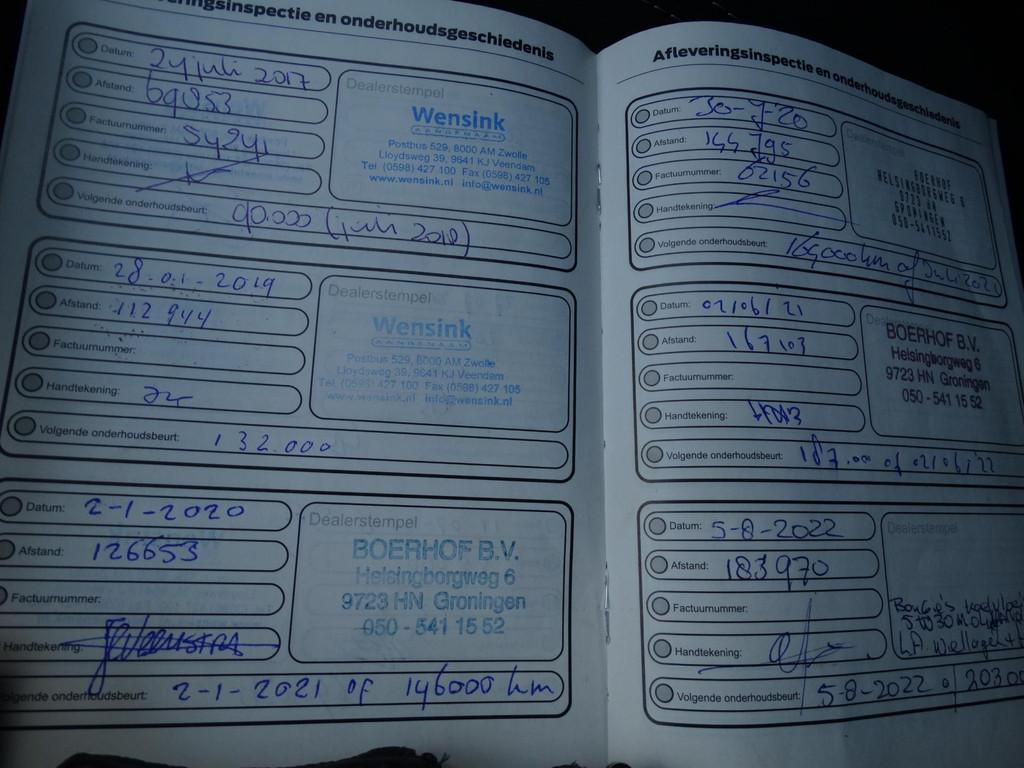 eringsinspectie en onderhoudsgeschiedenis
Datum: 24 juli 2017
Afstand: 69053
Factuurnummer: 54241
Handtekening:
Volgende onderhoudsbeurt: 90.000 (juli 2018)
Dealerstempel
Wensink
AANGENAAM
Postbus 529, 8000 AM Zwolle
Lloydsweg 39, 9641 KJ Veendam
Tel (0598) 427 100 Fax (0598) 427 105
www.wensink.nl info@wensink.nl
Datum: 28-01-2019
Afstand: 112 944
Factuurnummer:
Handtekening:
Volgende onderhoudsbeurt: 132.000
Dealerstempel
Wensink
AANGENAAM
Postbus 529, 8000 AM Zwolle
Lloydsweg 39, 9641 KJ Veendam
Tel (0598) 427 100 Fax (0598) 427 105
www.wensink.nl info@wensink.nl
Datum: 2-1-2020
Afstand: 126653
Factuurnummer:
Handtekening:
lgende onderhoudsbeurt: 2-1-2021 of 146000 km
Dealerstempel
BOERHOF B.V.
Helsingborgweg 6
9723 HN Groningen
050 - 541 15 52
Afleveringsinspectie en onderhoudsgeschiedenis
Datum: 30-7-20
Afstand: 144 795
Factuurnummer: 62156
Handtekening:
Volgende onderhoudsbeurt: 165000 km of Juli 2021
Dealerstempel
BOERHOF
HELSINGBORGWEG 6
9723 HN
GRONINGEN
050-5411552
Datum: 02/06/21
Afstand: 167103
Factuurnummer:
Handtekening:
Volgende onderhoudsbeurt: 187.000 of 02/06/'22
BOERHOF B.V.
Helsingborgweg 6
9723 HN Groningen
050 - 541 15 52
Datum: 5-8-2022
Afstand: 183970
Factuurnummer:
Handtekening:
Volgende onderhoudsbeurt: 5-8-2022 0 203.00
Dealerstempel
5W30